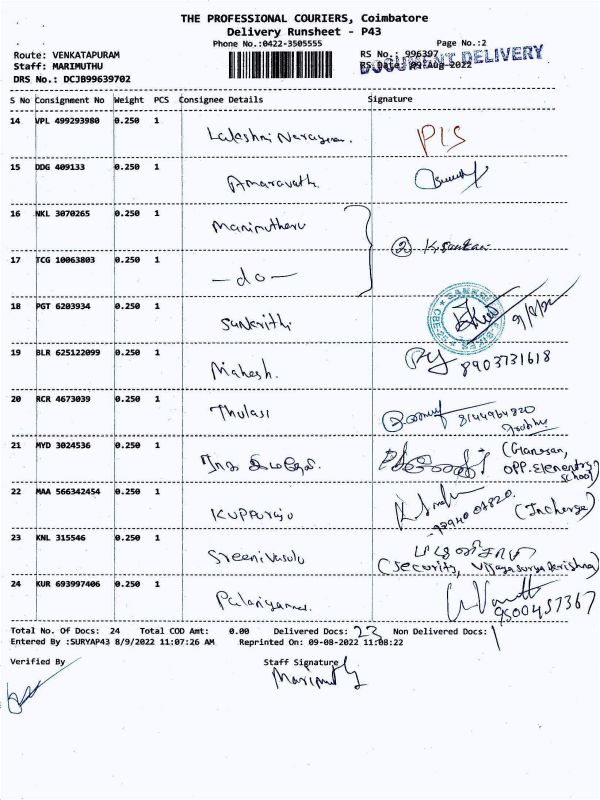 THE PROFESSIONAL COURIERS, Coimbatore
Delivery Runsheet - P43
Phone No.:0422-3505555 Page No.:2
Route: VENKATAPURAM RS No.: 996397
Staff: MARIMUTHU RS Date: 09-Aug-2022
DOCUMENT DELIVERY
DRS No.: DCJB99639702
S No Consignment No Weight PCS Consignee Details Signature
14 VPL 499293980 0.250 1
Lakshmi Narayanan. P/S
15 DDG 409133 0.250 1
Amaravath.
16 NKL 3070265 0.250 1
Marimuthu
② K.Sankar
17 TCG 10063803 0.250 1
—do—
18 PGT 6203934 0.250 1
Sankrithi 9/8/22
19 BLR 625122099 0.250 1
Mahesh. 8903731618
20 RCR 4673039 0.250 1
Thulasi 8144964820
21 MYD 3024536 0.250 1
(Ganesan,
opp. Elementry
School)
22 MAA 566342454 0.250 1
Kuppuraju (Incharge)
23 KNL 315546 0.250 1
Sreenivasulu (Security,
24 KUR 693997406 0.250 1
Palaniyamma. 9500457367
Total No. Of Docs: 24 Total COD Amt: 0.00 Delivered Docs: 23 Non Delivered Docs: 1
Entered By :SURYAP43 8/9/2022 11:07:26 AM Reprinted On: 09-08-2022 11:08:22
Verified By Staff Signature
Marimuthu